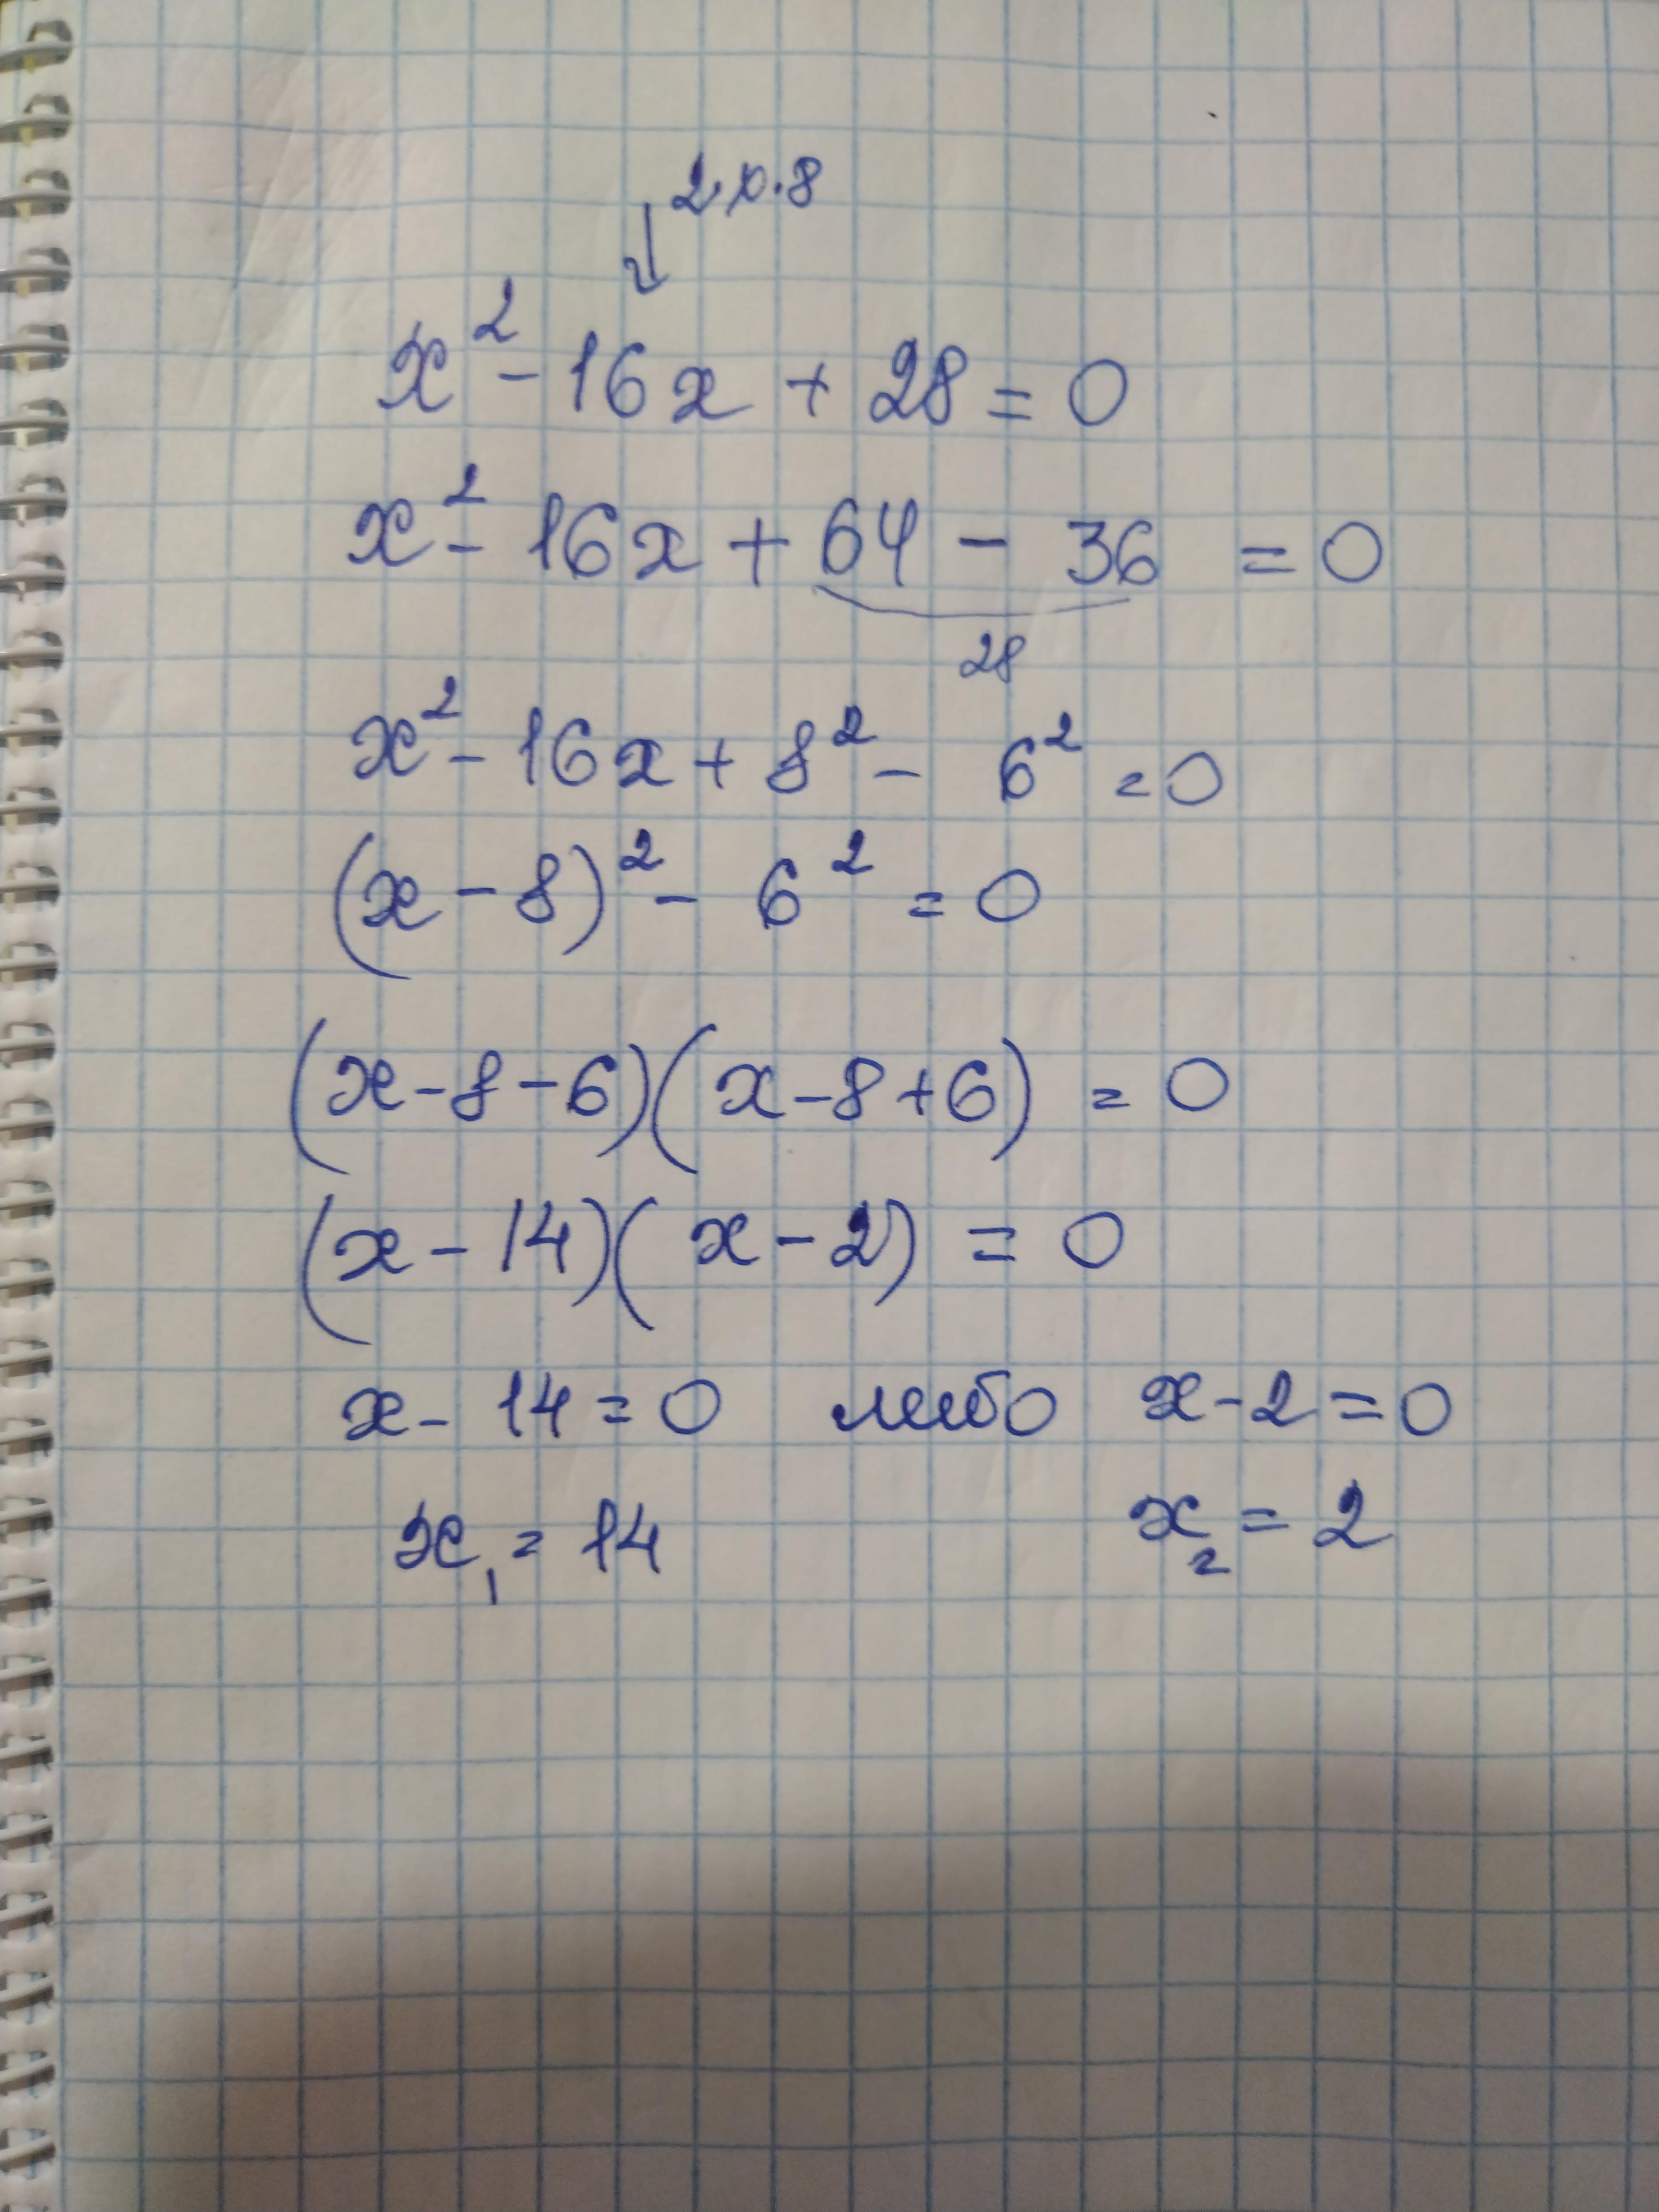 2·x·8
x² - 16x + 28 = 0
x² - 16x + 64 - 36 = 0
28
x² - 16x + 8² - 6² = 0
(x - 8)² - 6² = 0
(x - 8 - 6)(x - 8 + 6) = 0
(x - 14)(x - 2) = 0
x - 14 = 0 либо x - 2 = 0
x₁ = 14 x₂ = 2